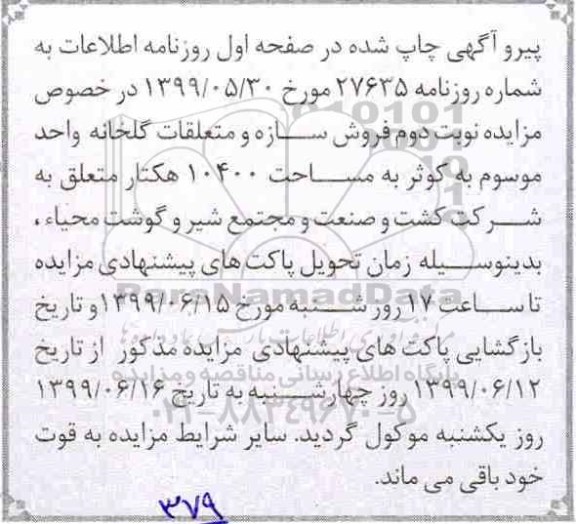 پیرو آگهی چاپ شده در صفحه اول روزنامه اطلاعات به
شماره روزنامه ۲۷۶۳۵ مورخ ۱۳۹۹/۰۵/۳۰ در خصوص
مزایده نوبت دوم فروش سازه و متعلقات گلخانه واحد
موسوم به کوثر به مساحت ۱۰۴۰۰ هکتار متعلق به
شرکت کشت و صنعت و مجتمع شیر و گوشت محیاء،
بدینوسیله زمان تحویل پاکت های پیشنهادی مزایده
تا ساعت ۱۷ روز شنبه مورخ ۱۳۹۹/۰۶/۱۵ و تاریخ
بازگشایی پاکت های پیشنهادی مزایده مذکور از تاریخ
۱۳۹۹/۰۶/۱۲ روز چهارشنبه به تاریخ ۱۳۹۹/۰۶/۱۶
روز یکشنبه موکول گردید. سایر شرایط مزایده به قوت
خود باقی می ماند.
۳۷۹
ParsNamadData
پایگاه اطلاع رسانی مناقصه و مزایده
۰۲۱-۸۸۳۴۹۶۷۰-۵